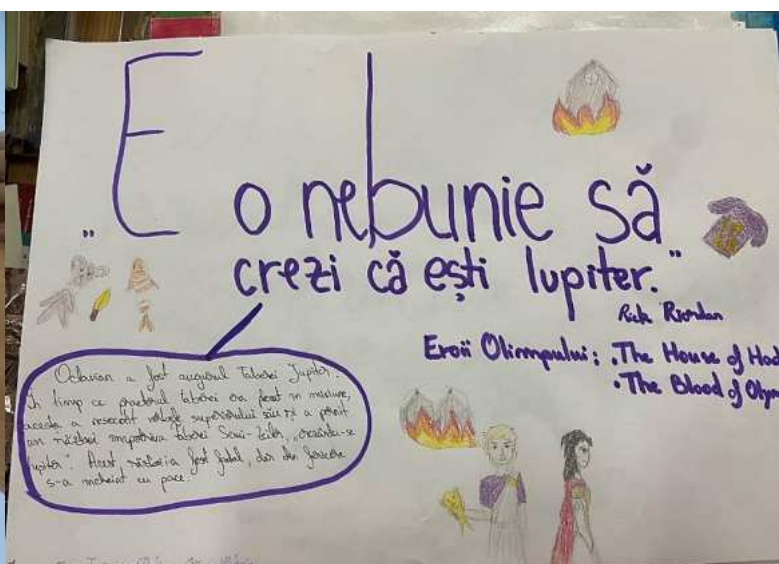 „E o nebunie să
crezi că ești Iupiter.”
Rick Riordan
Eroii Olimpului: • The House of Had
• The Blood of Olym
Octavian a fost augurul Taberei Jupiter.
În timp ce praetorul taberei era plecat în misiune,
acesta a nesocotit vorbele superiorului său și a pornit
un război împotriva Taberei Semi-Zeilor, „crezându-se
Iupiter”. Acest război a fost fatal, dar din fericire
s-a încheiat cu pace.